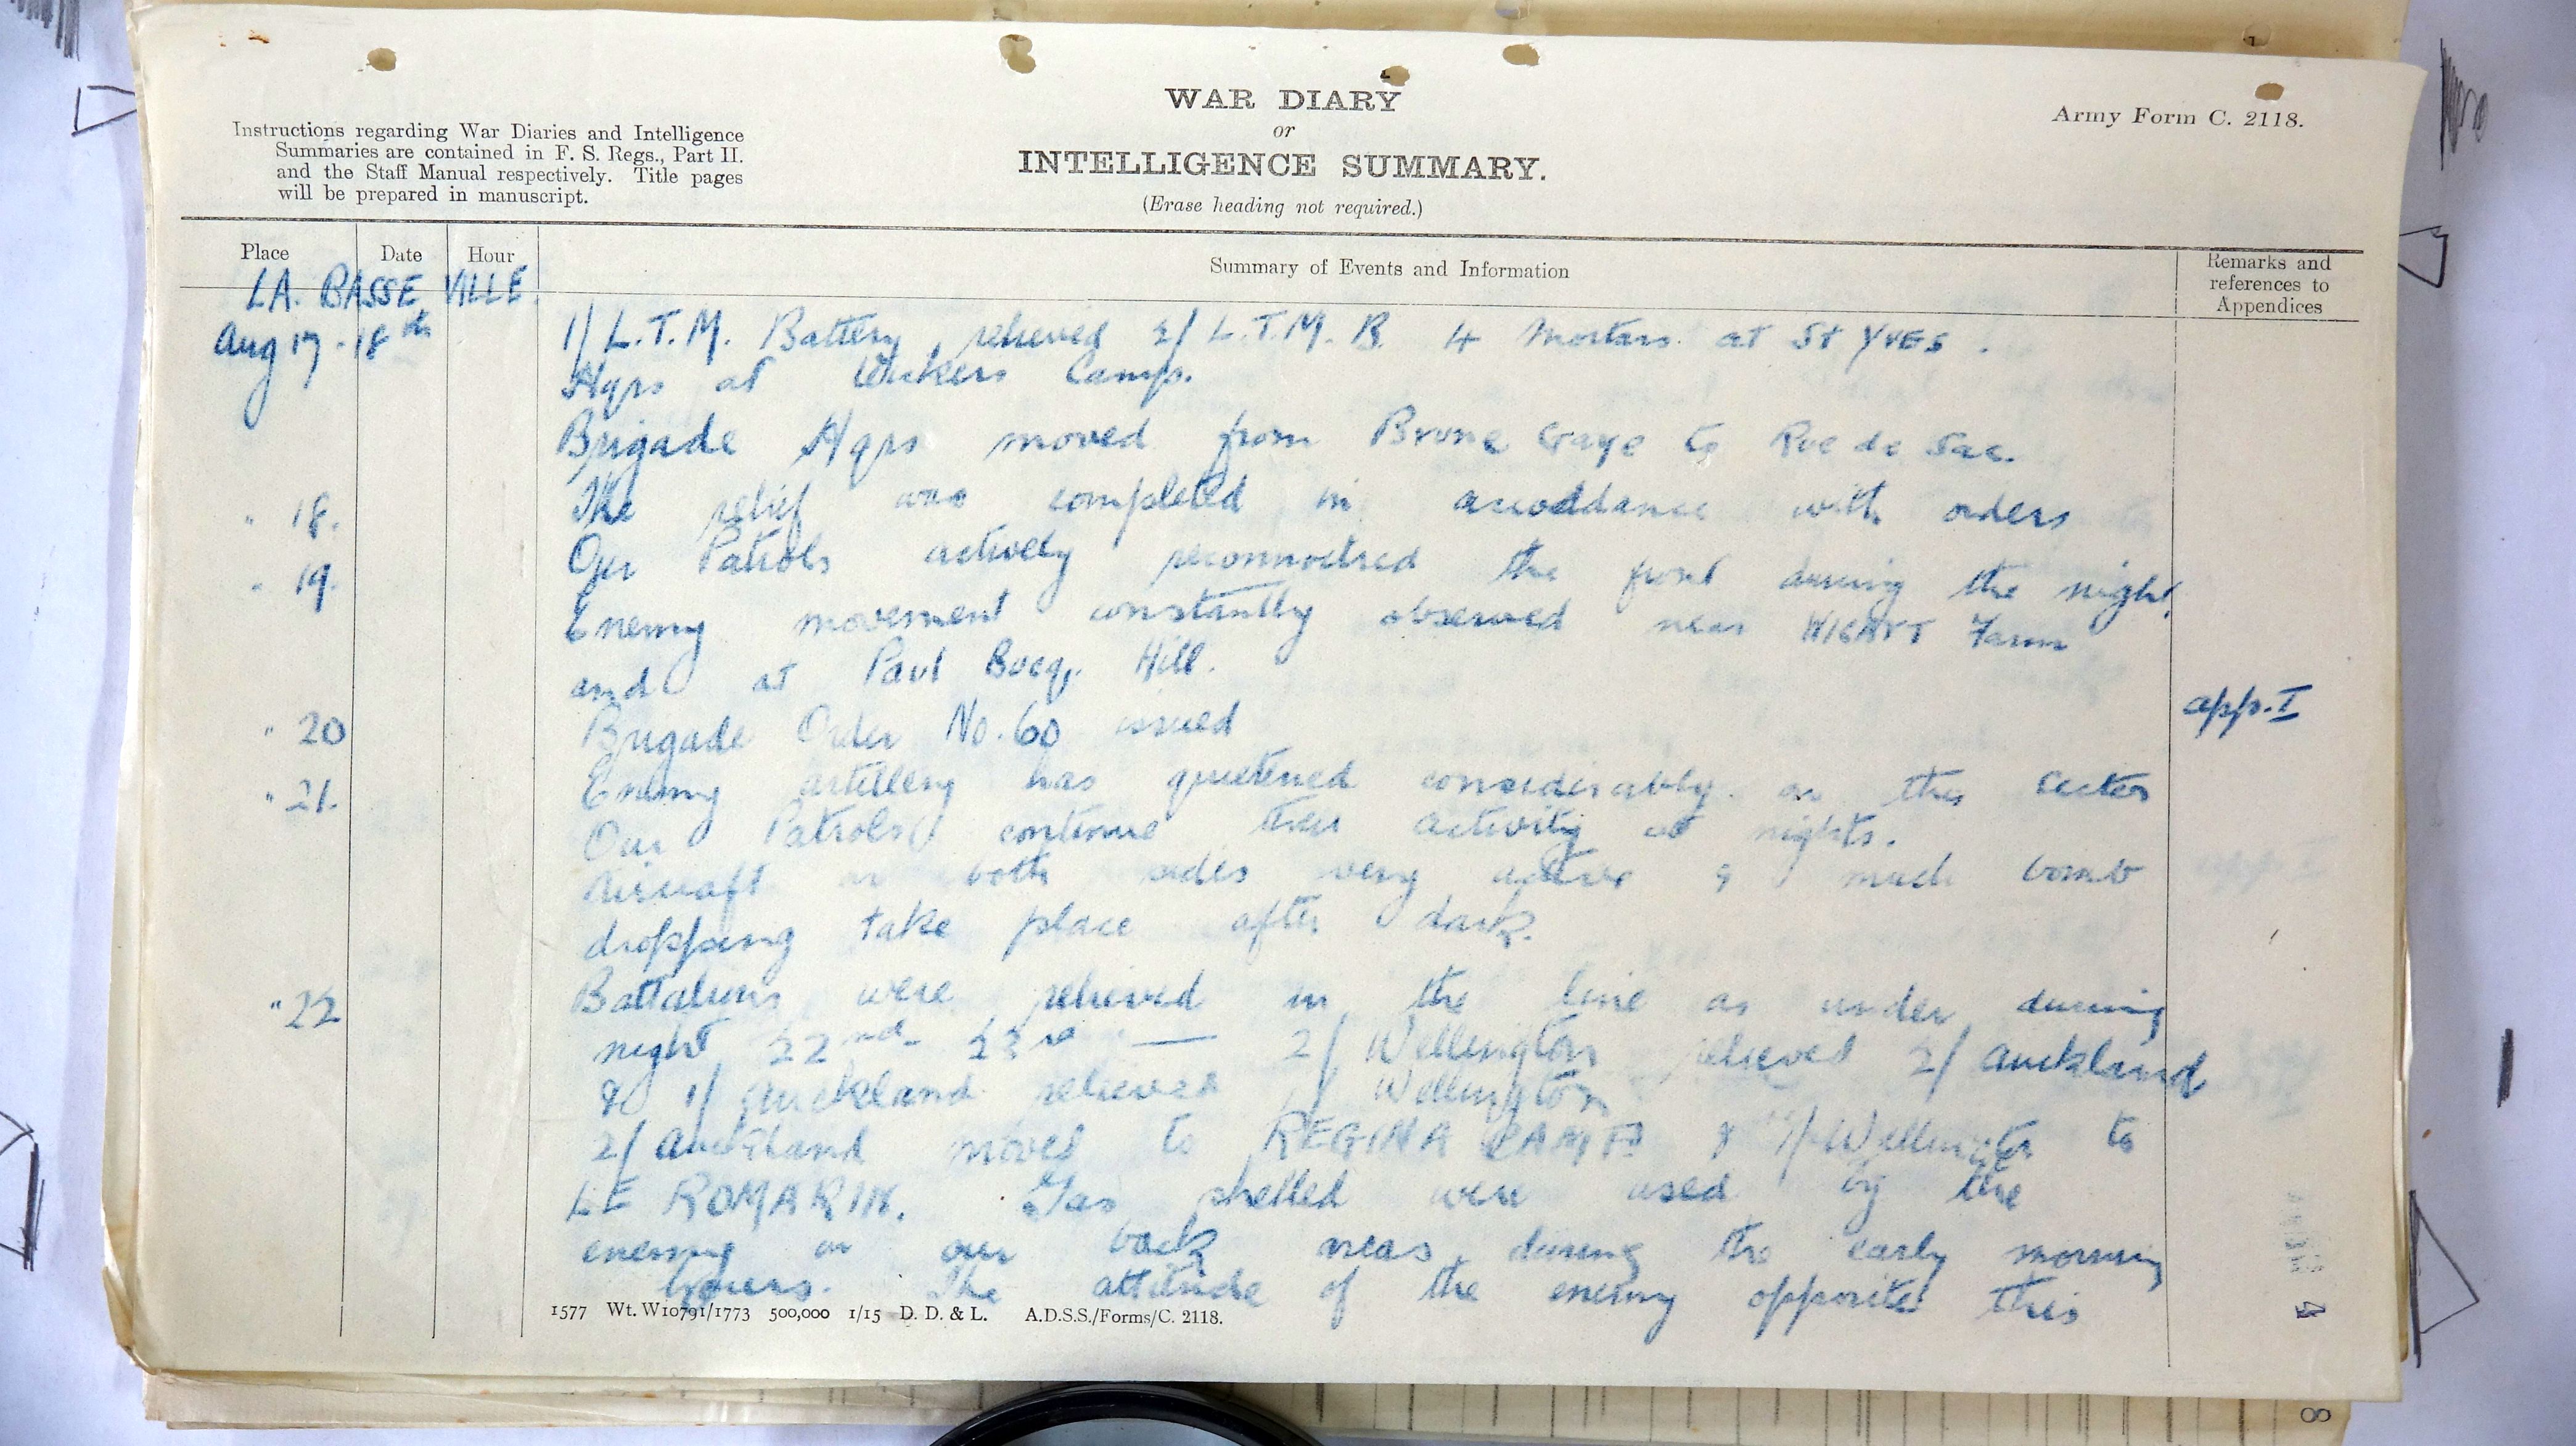 WAR DIARY
or
INTELLIGENCE SUMMARY.
(Erase heading not required.)
Army Form C. 2118.
Instructions regarding War Diaries and Intelligence
Summaries are contained in F. S. Regs., Part II.
and the Staff Manual respectively. Title pages
will be prepared in manuscript.
Place Date Hour Summary of Events and Information Remarks and references to Appendices
LA. BASSE VILLE
Aug 17-18th 1/ L.T.M. Battery relieved 2/ L.T.M. B. 4 Mortars at St YVES.
Hqrs at Camp.
Brigade Hqrs moved from Brune Gaye to Rue de Sac.
" 18. The relief was completed in accoddance with orders
" 19. Our Patrols actively reconnoitred the front during the night
Enemy movement constantly observed near Farm
and at Paul Bucq. Hill.
" 20 Brigade Order No. 60 issued app. I
" 21. Enemy artillery has quietened considerably on this Sector
Our Patrols continue their activity at nights.
Aircraft on both sides very active & much bomb
dropping take place after dark.
" 22 Battalions were relieved in the line as under during
night 22nd- 23rd — 2/ Wellington relieved 2/ Auckland
& 1/ Auckland relieved 1/ Wellington
2/ Auckland moved to REGINA CAMP & 1/ Wellington to
LE ROMARIN. Gas shelled were used by the
enemy on our back areas during the early morning
hours. The attitude of the enemy opposite this
1577 Wt. W10791/1773 500,000 1/15 D. D. & L. A.D.S.S./Forms/C. 2118.
4
8